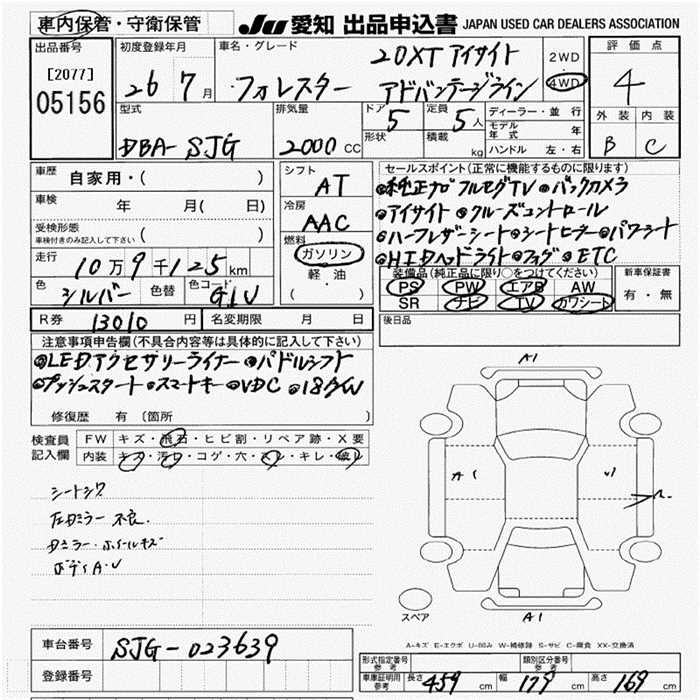 車内保管・守衛保管 JU 愛知 出品申込書 JAPAN USED CAR DEALERS ASSOCIATION
出品番号 [2077] 05156
初度登録年月 26年 7月
車名・グレード フォレスター 20XT アイサイト アドバンテージライン
2WD 4WD
評価点 4
外装 B 内装 C
型式 DBA-SJG
排気量 2000 CC
ドア 5 形状
定員 5人 積載 kg
ディーラー・並行
モデル年式 年
ハンドル 左・右
車歴 自家用・( )
車検 年 月( 日)
受検形態 車検付きのみ記入して下さい ( )
走行 10万9千125km
色 シルバー 色替 色コード G1U
シフト AT
冷房 AAC
燃料 ガソリン 軽油 ( )
セールスポイント(正常に機能するものに限ります)
●純正ナビフルセグTV ●バックカメラ
●アイサイト ●クルーズコントロール
●ハーフレザーシート ●シートヒーター ●パワーシート
●HIDヘッドライト ●フォグ ●ETC
装備品(純正品に限り○をつけてください)
PS PW エアB AW
SR ナビ TV カワシート
新車保証書 有・無
R券 13010円 名変期限 月 日
後日品
注意事項申告欄(不具合内容等は具体的に記入して下さい)
●LEDアクセサリーライナー ●パドルシフト
●プッシュスタート ●スマートキー ●VDC ●18AW
修復歴 有 〔箇所
検査員記入欄
FW キズ・飛石・ヒビ割・リペア跡・X要
内装 キズ・汚れ・コゲ・穴・スレ・キレ・破レ
シートシワ
左Dミラー 不良.
Dミラー・ホイールキズ
ボディA・U
A1
A1
U1
A1
スペア
A-キズ E-エクボ U-凹み W-補修跡 S-サビ C-腐食 XX-交換済
車台番号 SJG-023639
登録番号
形式指定番号 参考 類別区分番号 参考
車庫証明用 参考 長さ 459 cm 幅 179 cm 高さ 169 cm